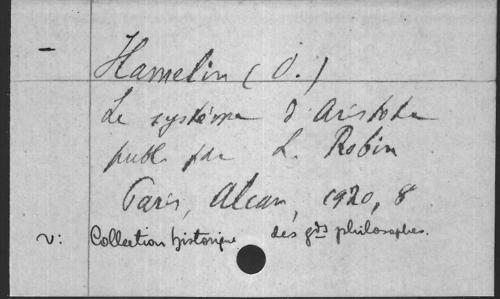 — Hamelin (O.)
Le système d'Aristote
publ. par L. Robin
Paris, Alcan, 1920, 8°
v: Collection historique des gds philosophes.